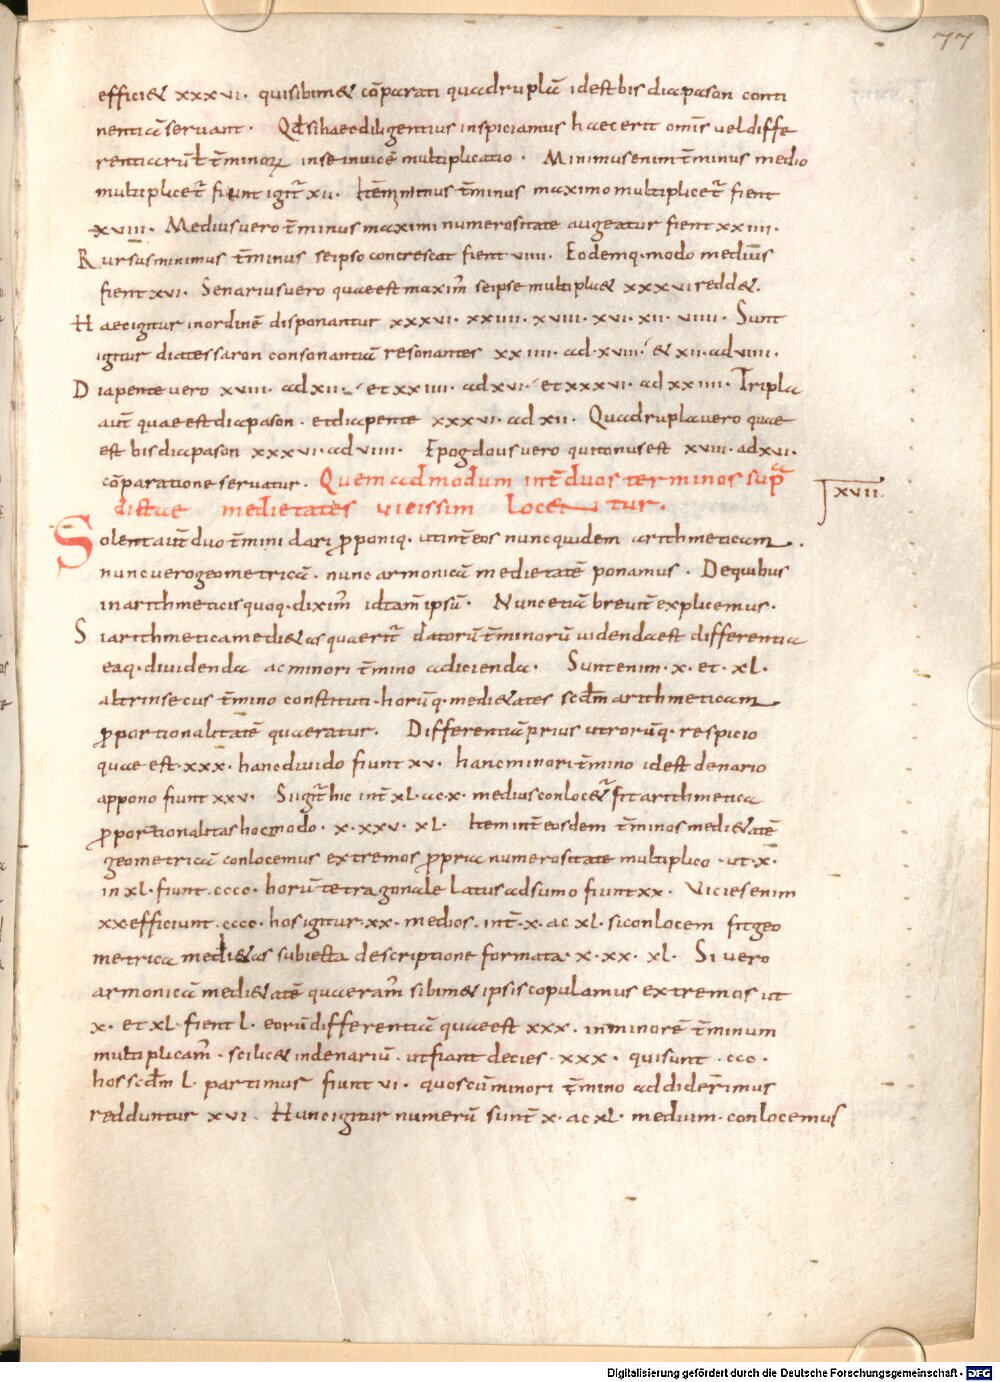 77
efficiet xxxvi. quisibimet cōparati quadruplā idest bis diapason conti
nentiā servant. Qđ si haec diligentius inspiciamus haec erit omīs vel diffe
rentiarū ł t̄minorꝝ in se invicē multiplicatio. Minimus enim t̄minus medio
multiplicet̄ fiunt igit̄ xii. Itē minimus t̄minus maximo multiplicet̄ fient
xviii. Medius vero t̄minus maximi numerositate augeatur fient xxiiii.
Rursus minimus t̄minus seipso concrescat fient viiii. Eodemq. modo medius
fient xvi. Senarius vero quae est maxim̄ seipse multiplicet xxxvi reddet.
Haec igitur in ordinē disponantur xxxvi. xxiiii. xviii. xvi. xii. viiii. Sunt
igitur diatessaron consonantiā resonantes xxiiii. ad xviii. et xii. ad viiii.
Diapente vero xviii. ad xii. et xxiiii. ad xvi. et xxxvi. ad xxiiii. Tripla
aut̄ quae est diapason. et diapente xxxvi. ad xii. Quadrupla vero quae
est bis diapason xxxvi. ad viiii. Epogdous vero qui tonus est xviii. ad xvi.
cōparatione servatur. Quemadmodum int̄ duos terminos supra
dictae medietates vicissim locentur.
xvii.
Solent aut̄ duo t̄mini dari p̄poniq. ut int̄ eos nunc quidem arithmeticam.
nunc vero geometricā. nunc armonicā medietatē ponamus. De quibus
in arithmeticis quoq. dixim̄ id tam̄ ipsū. Nunc etiā brevit̄ explicemus.
Si arithmetica medietas quaerit̄ datorū t̄minorū videnda est differentia
eaq. dividenda ac minori t̄mino adicienda. Sunt enim. x. et. xl.
altrinsecus t̄mino constituti. horūq. medietates scđm arithmeticam
p̄portionalitatē quaeratur. Differentiā prius utrorūq. respicio
quae est. xxx. hanc divido fiunt xv. hanc minori t̄mino idest denario
appono fiunt xxv. Si igit̄ hic int̄ xl. ac. x. medius conlocet̄ fit arithmetica
p̄portionalitas hoc modo. x. xxv. xl. Item int̄ eosdem t̄minos medietatē
geometricā conlocemus extremos p̄pria numerositate multiplico. ut. x.
in xl. fiunt. cccc. horū tetragonale latus adsumo fiunt xx. Vicies enim
xx efficiunt. cccc. hos igitur. xx. medios. int̄. x. ac xl. si conlocem fit geo
metrica medietas subiecta descriptione formata. x. xx. xl. Si vero
armonicā medietatē quaeram̄ sibimet ipsis copulamus extremos ut
x. et xl. fient l. eorū differentiā quae est xxx. in minorē t̄minum
multiplicam̄. scilicet in denariū. ut fiant decies. xxx. qui sunt. ccc.
hos scđm l. partimus fiunt vi. quos cū minori t̄mino addiderimus
redduntur xvi. Hunc igitur numerū si int̄ x. ac xl. medium. conlocemus
Digitalisierung gefördert durch die Deutsche Forschungsgemeinschaft - DFG